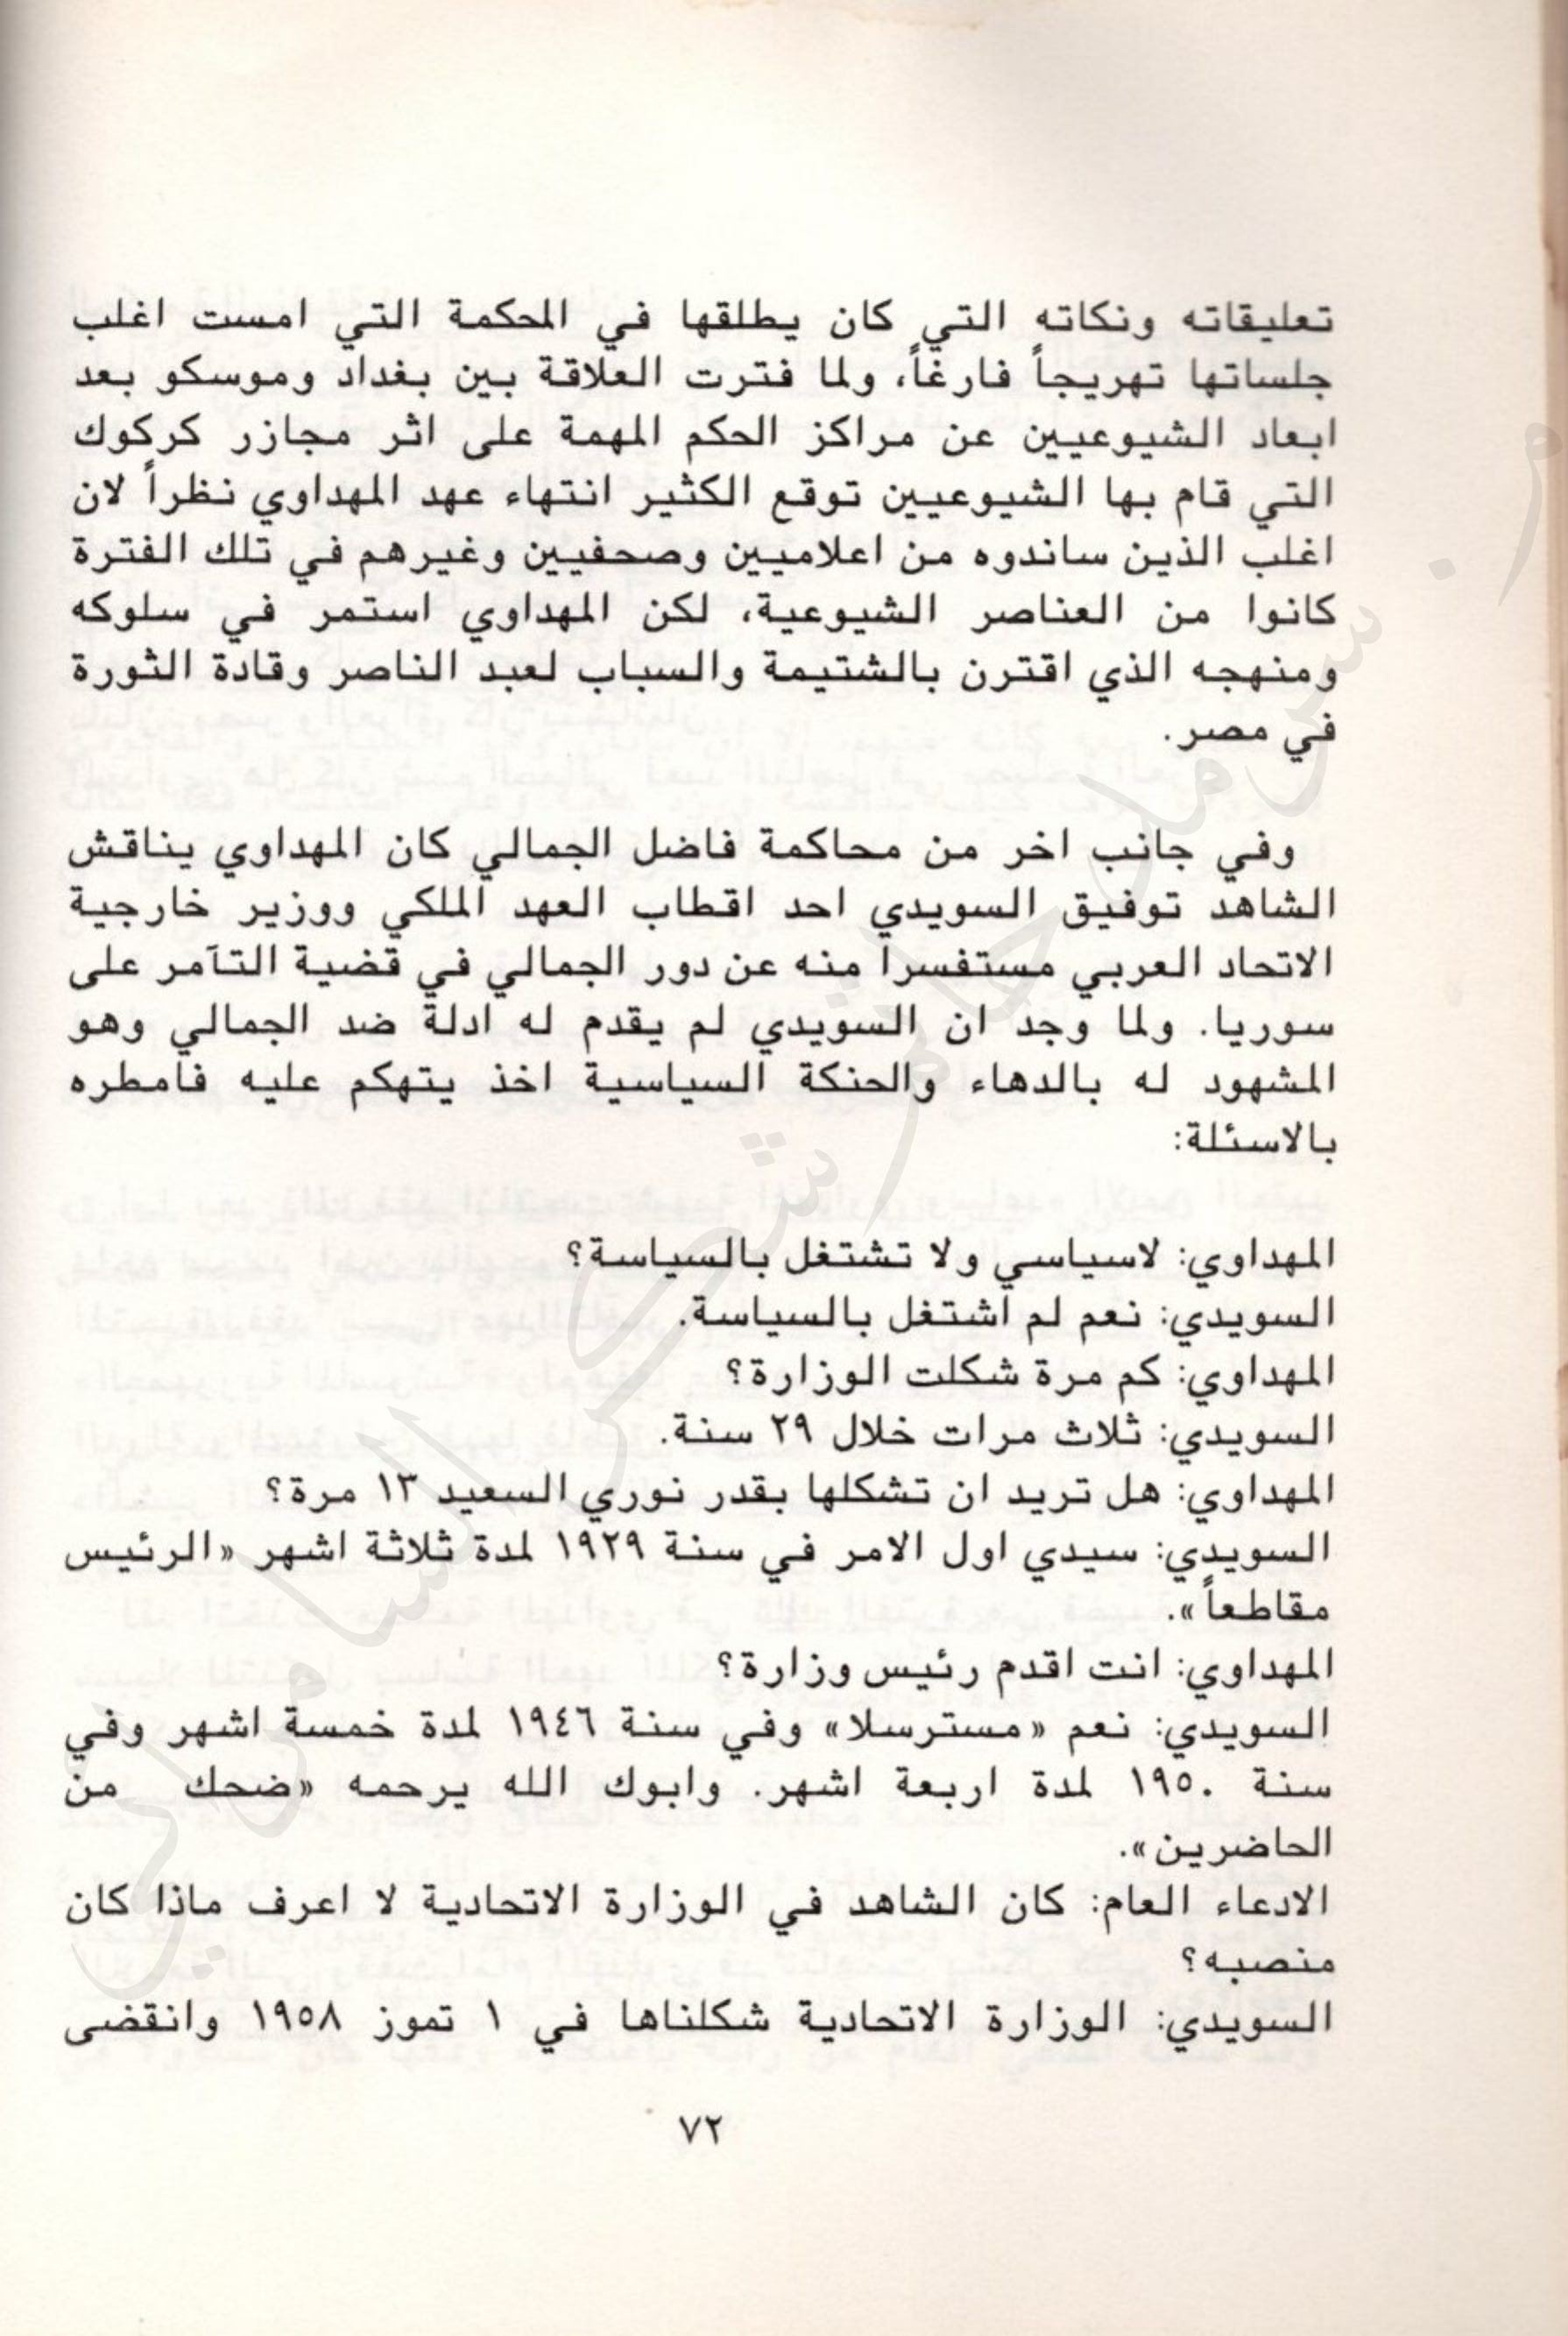 تعليقاته ونكاته التي كان يطلقها في المحكمة التي امست اغلب
جلساتها تهريجاً فارغاً، ولما فترت العلاقة بين بغداد وموسكو بعد
ابعاد الشيوعيين عن مراكز الحكم المهمة على اثر مجازر كركوك
التي قام بها الشيوعيين توقع الكثير انتهاء عهد المهداوي نظراً لان
اغلب الذين ساندوه من اعلاميين وصحفيين وغيرهم في تلك الفترة
كانوا من العناصر الشيوعية، لكن المهداوي استمر في سلوكه
ومنهجه الذي اقترن بالشتيمة والسباب لعبد الناصر وقادة الثورة
في مصر.
وفي جانب اخر من محاكمة فاضل الجمالي كان المهداوي يناقش
الشاهد توفيق السويدي احد اقطاب العهد الملكي ووزير خارجية
الاتحاد العربي مستفسراً منه عن دور الجمالي في قضية التآمر على
سوريا. ولما وجد ان السويدي لم يقدم له ادلة ضد الجمالي وهو
المشهود له بالدهاء والحنكة السياسية اخذ يتهكم عليه فامطره
بالاسئلة:
المهداوي: لاسياسي ولا تشتغل بالسياسة؟
السويدي: نعم لم اشتغل بالسياسة.
المهداوي: كم مرة شكلت الوزارة؟
السويدي: ثلاث مرات خلال ٢٩ سنة.
المهداوي: هل تريد ان تشكلها بقدر نوري السعيد ١٣ مرة؟
السويدي: سيدي اول الامر في سنة ١٩٢٩ لمدة ثلاثة اشهر «الرئيس
مقاطعاً».
المهداوي: انت اقدم رئيس وزارة؟
السويدي: نعم «مسترسلا» وفي سنة ١٩٤٦ لمدة خمسة اشهر وفي
سنة ١٩٥٠ لمدة اربعة اشهر. وابوك الله يرحمه «ضحك من
الحاضرين».
الادعاء العام: كان الشاهد في الوزارة الاتحادية لا اعرف ماذا كان
منصبه؟
السويدي: الوزارة الاتحادية شكلناها في ١ تموز ١٩٥٨ وانقضى
٧٢
سرمد حاتم شكر السامرائي